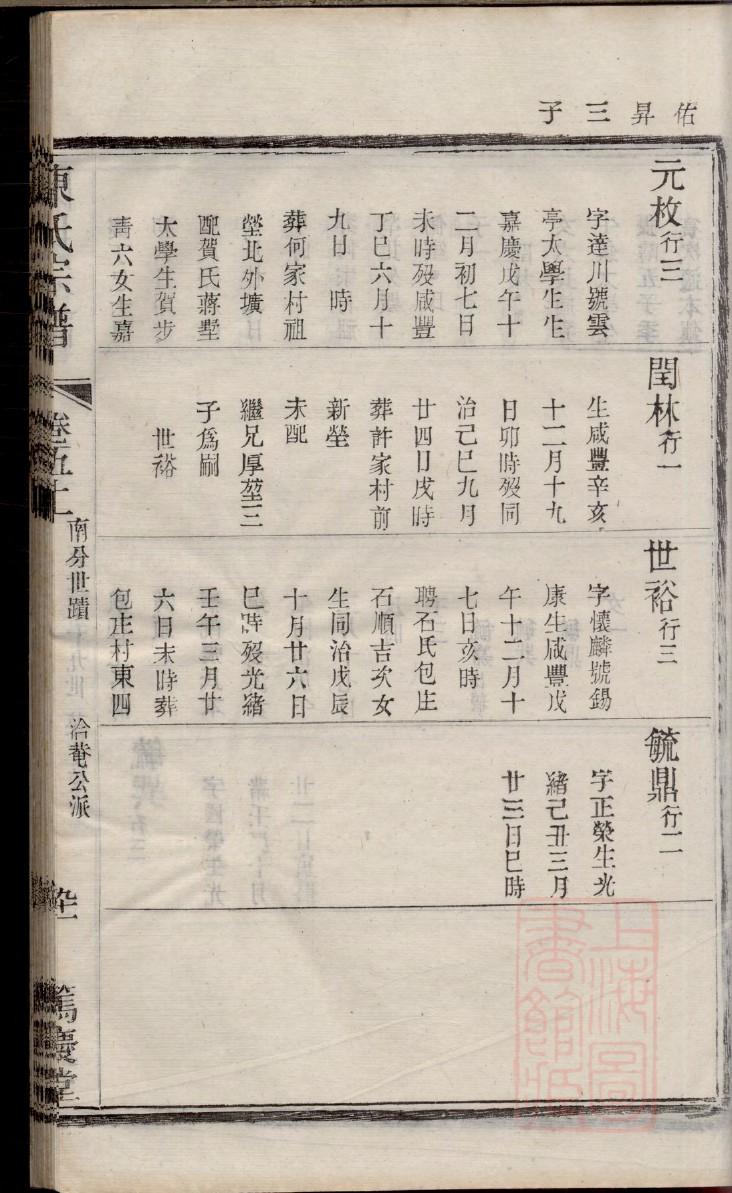 佑昇三子
元枚行三
字達川號雲
亭太學生生
嘉慶戊午十
二月初七日
未時歿咸豐
丁巳六月十
九日 時
葬何家村祖
塋北外壙
配賀氏蔣墅
太學生賀步
青六女生嘉
閏林行一
生咸豐辛亥
十二月十九
日卯時歿同
治己巳九月
廿四日戌時
葬許家村前
新塋
未配
繼兄厚堃三
子爲嗣
世裕
世裕行三
字懷麟號錫
康生咸豐戊
午十二月十
七日亥時
聘石氏包庄
石順吉次女
生同治戊辰
十月廿六日
巳時歿光緒
壬午三月廿
六日未時葬
包庄村東四
毓鼎行二
字正榮生光
緒己丑三月
廿三日巳時
陳氏宗譜
卷五十
南分世蹟
洽菴公派
篤慶堂
上海圖書館藏